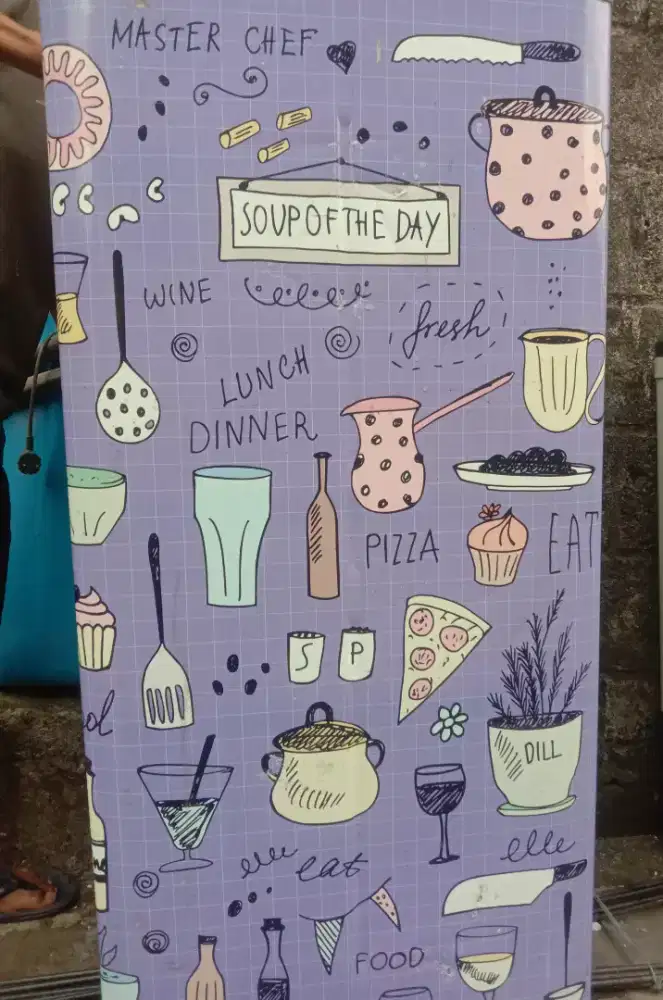 MASTER CHEF
SOUP OF THE DAY
WINE
fresh
LUNCH
DINNER
PIZZA
EAT
S
P
DILL
eat
FOOD